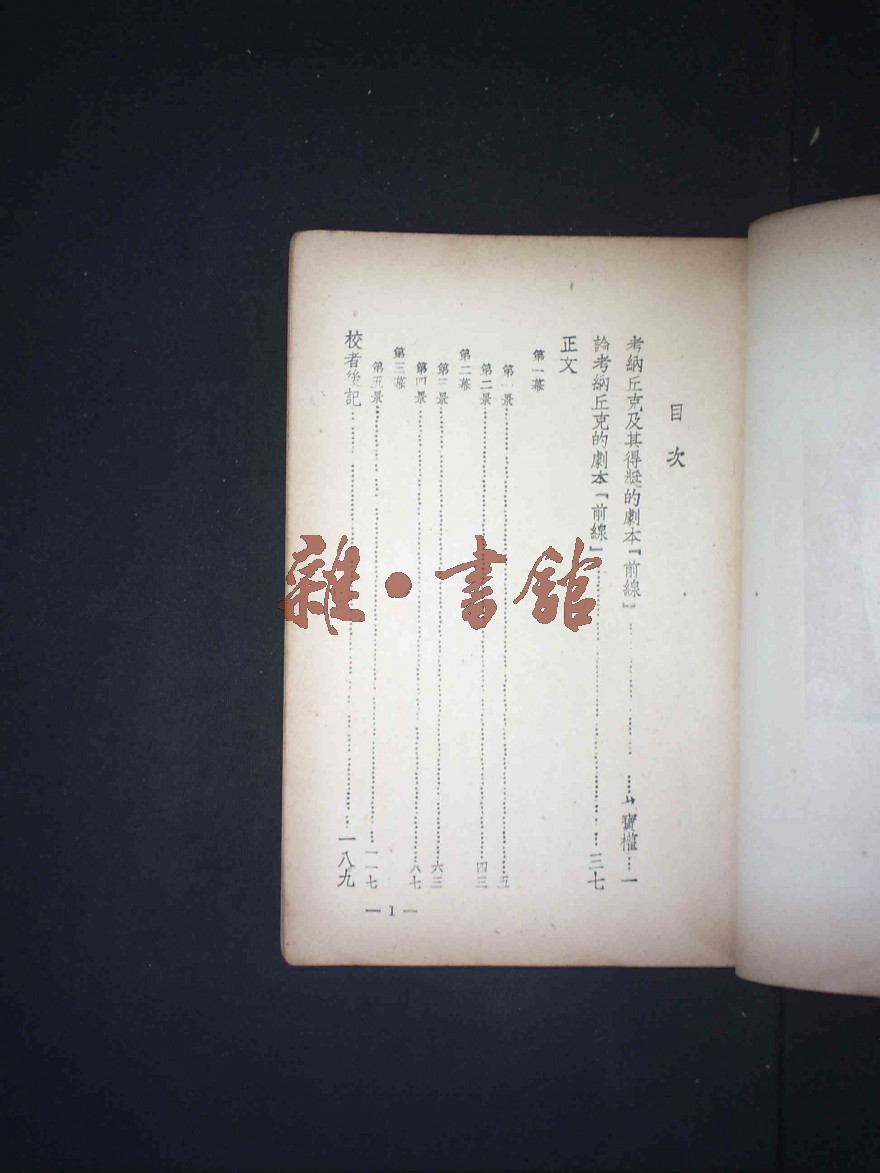 目次
考納丘克及其得獎的劇本「前線」……寶權…一
論考納丘克的劇本「前線」……三七
正文
第一幕
第一景……五
第二景……四三
第二幕
第三景……六三
第四景……八七
第三幕
第五景……一一七
校者後記……一八九
— 1 —
雜·書館